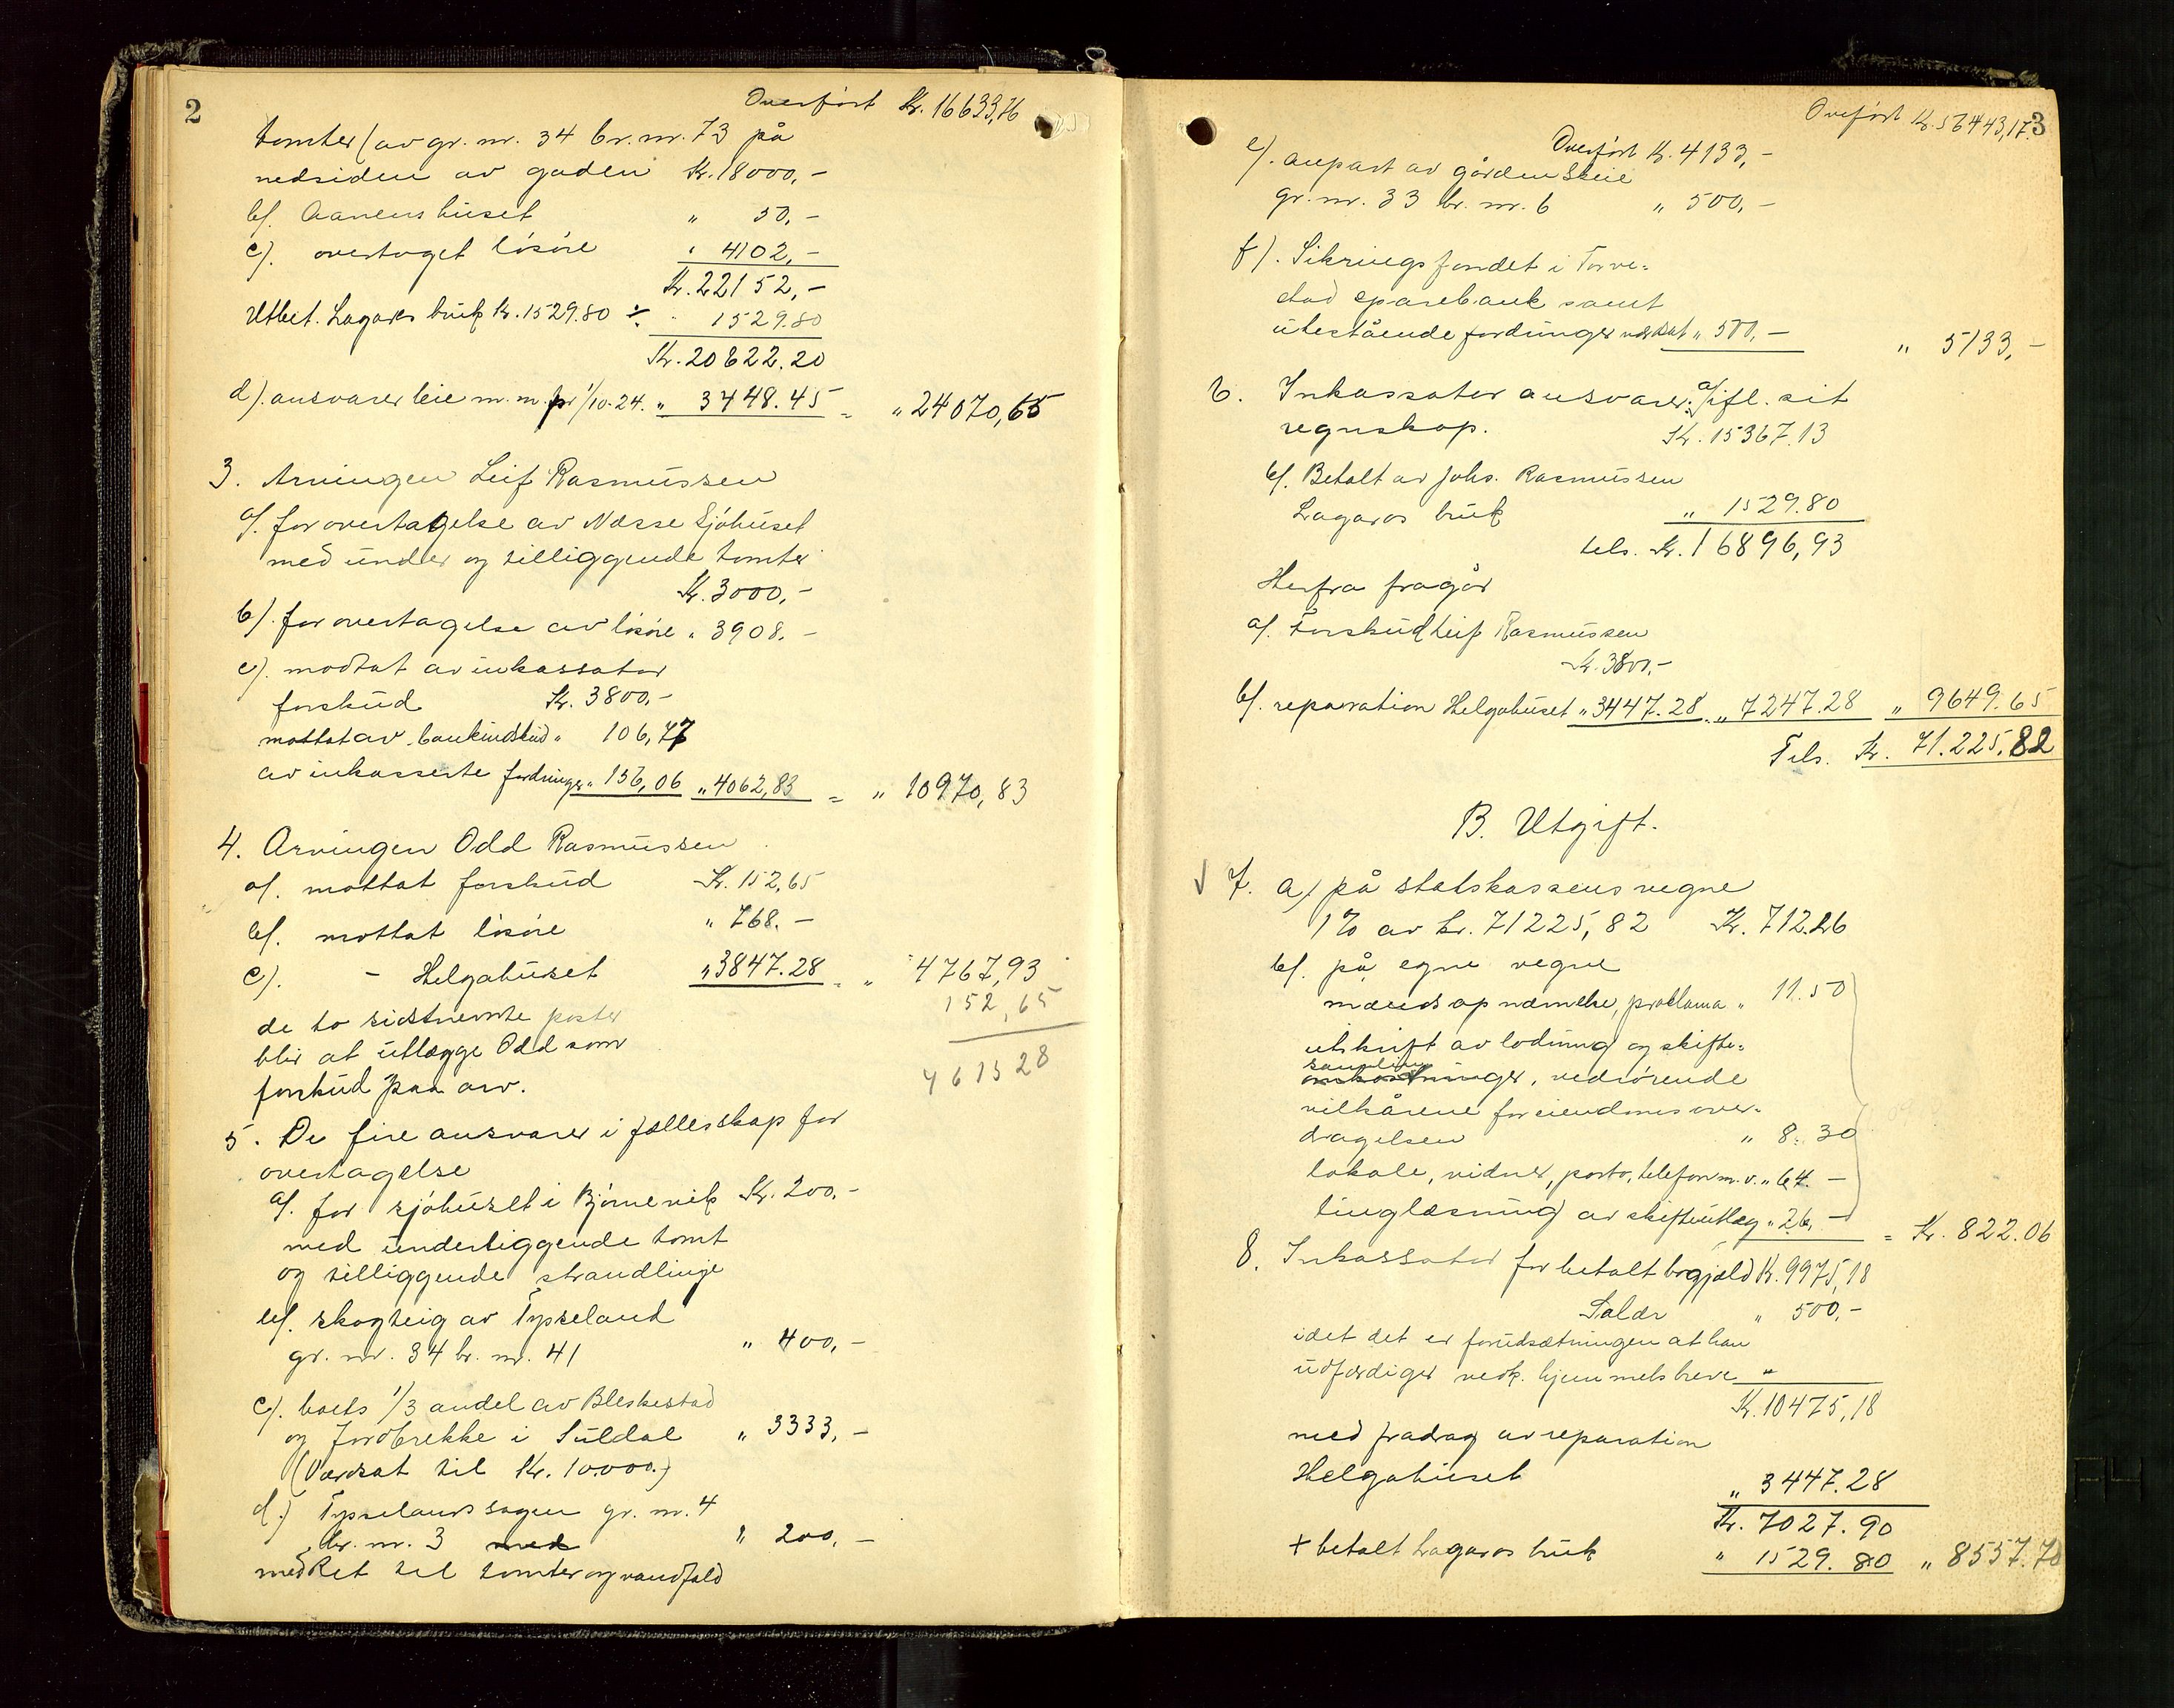 2
Overført Kr. 16633,76
tomter (av gr. nr. 34 br. nr. 73 på
nedsiden av gaden Kr. 18000,-
b/. Aanenshuset " 50,-
c). overtaget løsøre " 4102,-
Kr. 22152,-
Utbet. Lagaros bruk Kr. 1529.80 ÷ " 1529.80
Kr. 20622.20
d). ansvarer leie m. m. pr 1/10-24. " 3448.45 = " 24070,65
3. Arvingen Leif Rasmussen
a/. for overtagelse av Næsse Sjøhuset
med under og tilliggende tomter
Kr. 3000,-
b). for overtagelse av løsøre " 3908.-
c). modtat av inkassator
forskud Kr. 3800,-
mottat av bankindskud " 106,77
av inkasserte fordringer " 156,06 " 4062,83 = " 10970,83
4. Arvingen Odd Rasmussen
a/. mottat forskud Kr. 152,65
b/. mottat løsøre " 768.-
c). - Helgahuset " 3847.28 = " 4767,93
152,65
de to sidstnevnte poster
blir at utlægge Odd som
4615 28
forskud paa arv.
5. De fire ansvarer i fællesskap for
overtagelse
a/. for sjøhuset i Bjørnevik Kr. 200,-
med underliggende tomt
og tilliggende strandlinje
b/. skogteig av Typseland
gr. nr. 34 br. nr. 41 " 400,-
c/. boets 1/3 andel av Bleskestad
og Jordbrekke i Suldal " 3333,-
(Værdsat til Kr. 10.000.)
d.) Typselandssagen gr. nr. 4
br. nr. 3 med " 200,-
med Ret til tomter og vandfald
Overført Kr. 56443,17
3
Overført Kr. 4133,-
e/. anpart av gården Skeie
gr. nr. 33 br. nr. 6 " 500,-
f). Sikringsfondet i Torve-
stad sparebank samt
utestående fordringer værdsat " 500,- " 5133,-
6. Inkassator ansvarer: a/ ifl. sit
regnskap. Kr. 15367.13
b/. Betalt av Johs. Rasmussen
Lagaros bruk " 1529.80
tels. Kr. 16896,93
Herfra fragår
a/. Forskud Leif Rasmussen
Kr. 3800,-
b/. reparation Helgahuset " 3447.28 " 7247.28 " 9649.65
Tils. Kr. 71.225,82
B. Utgift.
√ 7. a) på statskassens vegne
1% av kr. 71225,82 Kr. 712.26
b/. på egne vegne
mænds opnævnelse, proklama " 11.50
utskrift av lodning og skifte-
samling
omkostninger, vedrørende
vilkårene for eiendomsover-
dragelsen " 8.30
lokale, vidner, porto, telefon m. v. " 64.-
tinglæsning av skifteutlæg " 26,- = Kr. 822.06
8. Inkassator for betalt bogjæld Kr. 9975,18
Salær " 500,-
idet det er forudsætningen at han
udfærdiger vedk. hjemmelsbreve "
Kr. 10475,18
med fradrag av reparation
Helgahuset " 3447.28
Kr. 7027.90
+ betalt Lagaros bruk " 1529.80 " 8557.70